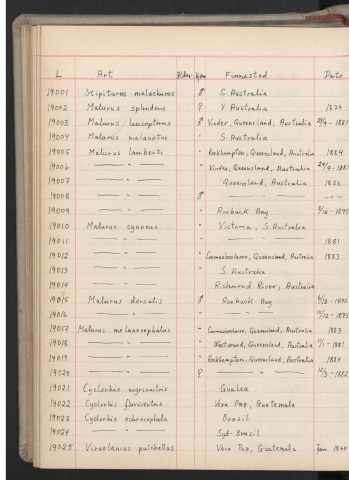 L Art Ålder Kön Finnested Date
19001 Stipiturus malachurus ♂ S. Australia
19002 Malurus splendens ♀ V Australia 1874
19003 Malurus leucopterus ♂ Vinder, Queensland, Australia - 1881
19004 Malurus melanotus " S. Australia
19005 Malurus Lamberti " Rockhampton, Queensland, Australia 1884
19006 — " — " Vindex, Queensland, Australia 24/9 - 1881
19007 — " — " Queensland, Australia 1826
19008 — " — ♂ — " — — " —
19009 — " — " Roebuck Bay - 1895
19010 Malurus cyaneus " Victoria, S. Australia
19011 — " — " — " — 1881
19012 — " — " Coomooboolaroo, Queensland, Australia 1883
19013 — " — " S. Australia
19014 — " — Richmond River, Australia
19015 Malurus dorsalis ♂ Roebuck Bay - 1895
19016 — " — " — " — - 1895
19017 Malurus melanocephalus " Coomooboolaroo, Queensland, Australia 1883
19018 — " — " Westwood, Queensland, Australia - 1881
19019 — " — " Rockhampton, Queensland, Australia 1884
19020 — " — ♀ — " — 12/3 - 1882
19021 Cyclorhis nigrirostris Gualea
19022 Cyclorhis flaviventris Vera Paz, Guatemala
19023 Cyclorhis ochrocephala Brasil
19024 — " — Syd-Brasil
19025 Vireolanius pulchellus Vera Paz, Guatemala Jan 1860